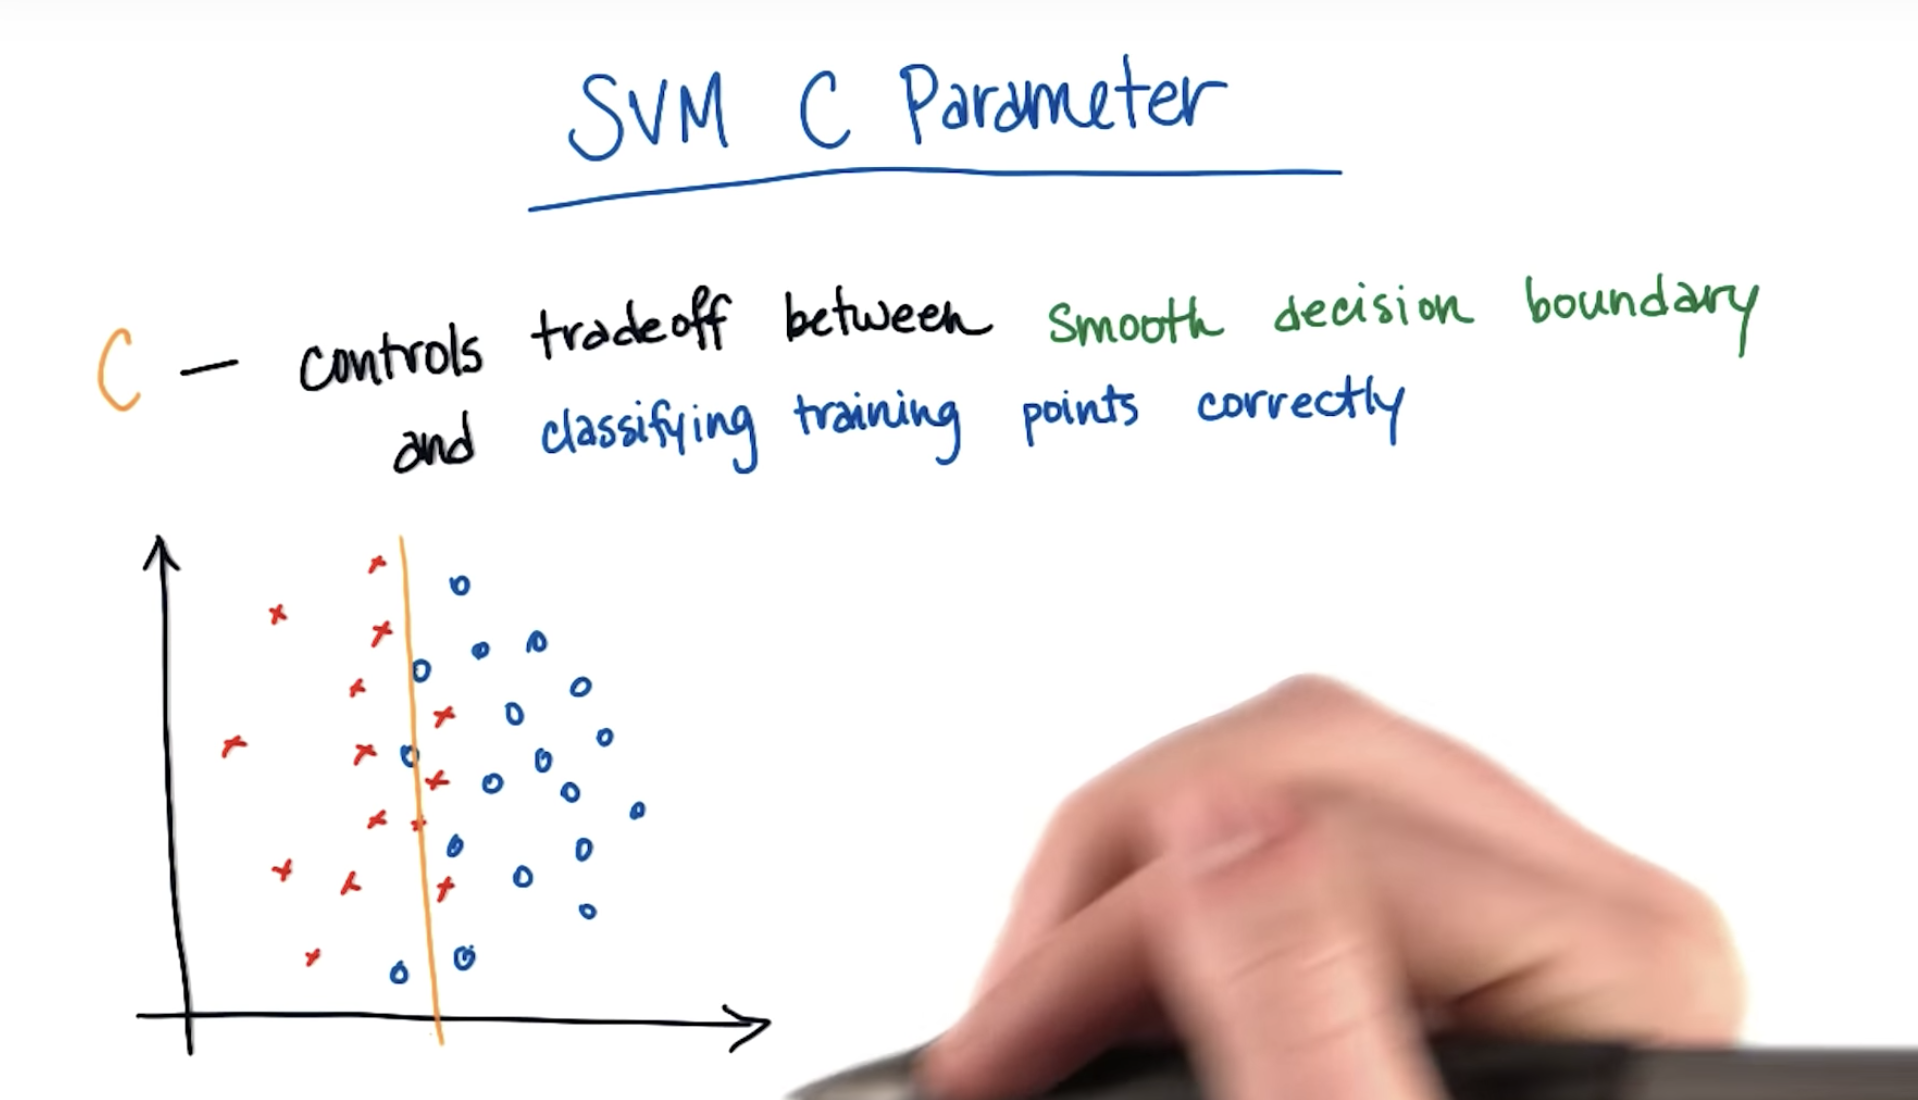 SVM C Parameter
C — controls tradeoff between smooth decision boundary
and classifying training points correctly